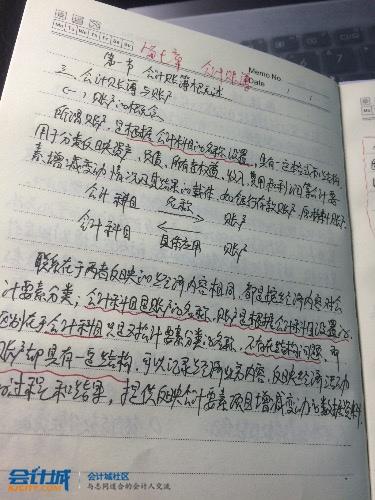 第七章 会计账簿
Memo No.
Date / /
Mo Tu We Th Fr Sa Su
第一节 会计账簿概述
三、会计账簿与账户
(一)账户的概念
所谓账户,是根据会计科目的名称设置,具有一定格式和结构,
用于分类反映资产、负债、所有者权益、收入、费用和利润等会计要
素增减变动情况及其结果的载体,如银行存款账户、原材料账户
会计科目 名称 账户
会计科目 具体应用 账户
联系在于两者反映的经济内容相同,都是按经济内容对会
计要素分类;会计科目是账户的名称,账户是根据会计科目设置的。
区别在于会计科目只是对会计要素分类的名称,不存在结构问题,而
账户却具有一定结构,可以记录经济业务内容,反映经济活动
的过程和结果,提供反映会计要素项目增减变动的数据资料.
会计城
KJCITY.COM
会计城社区
与志同道合的会计人交流